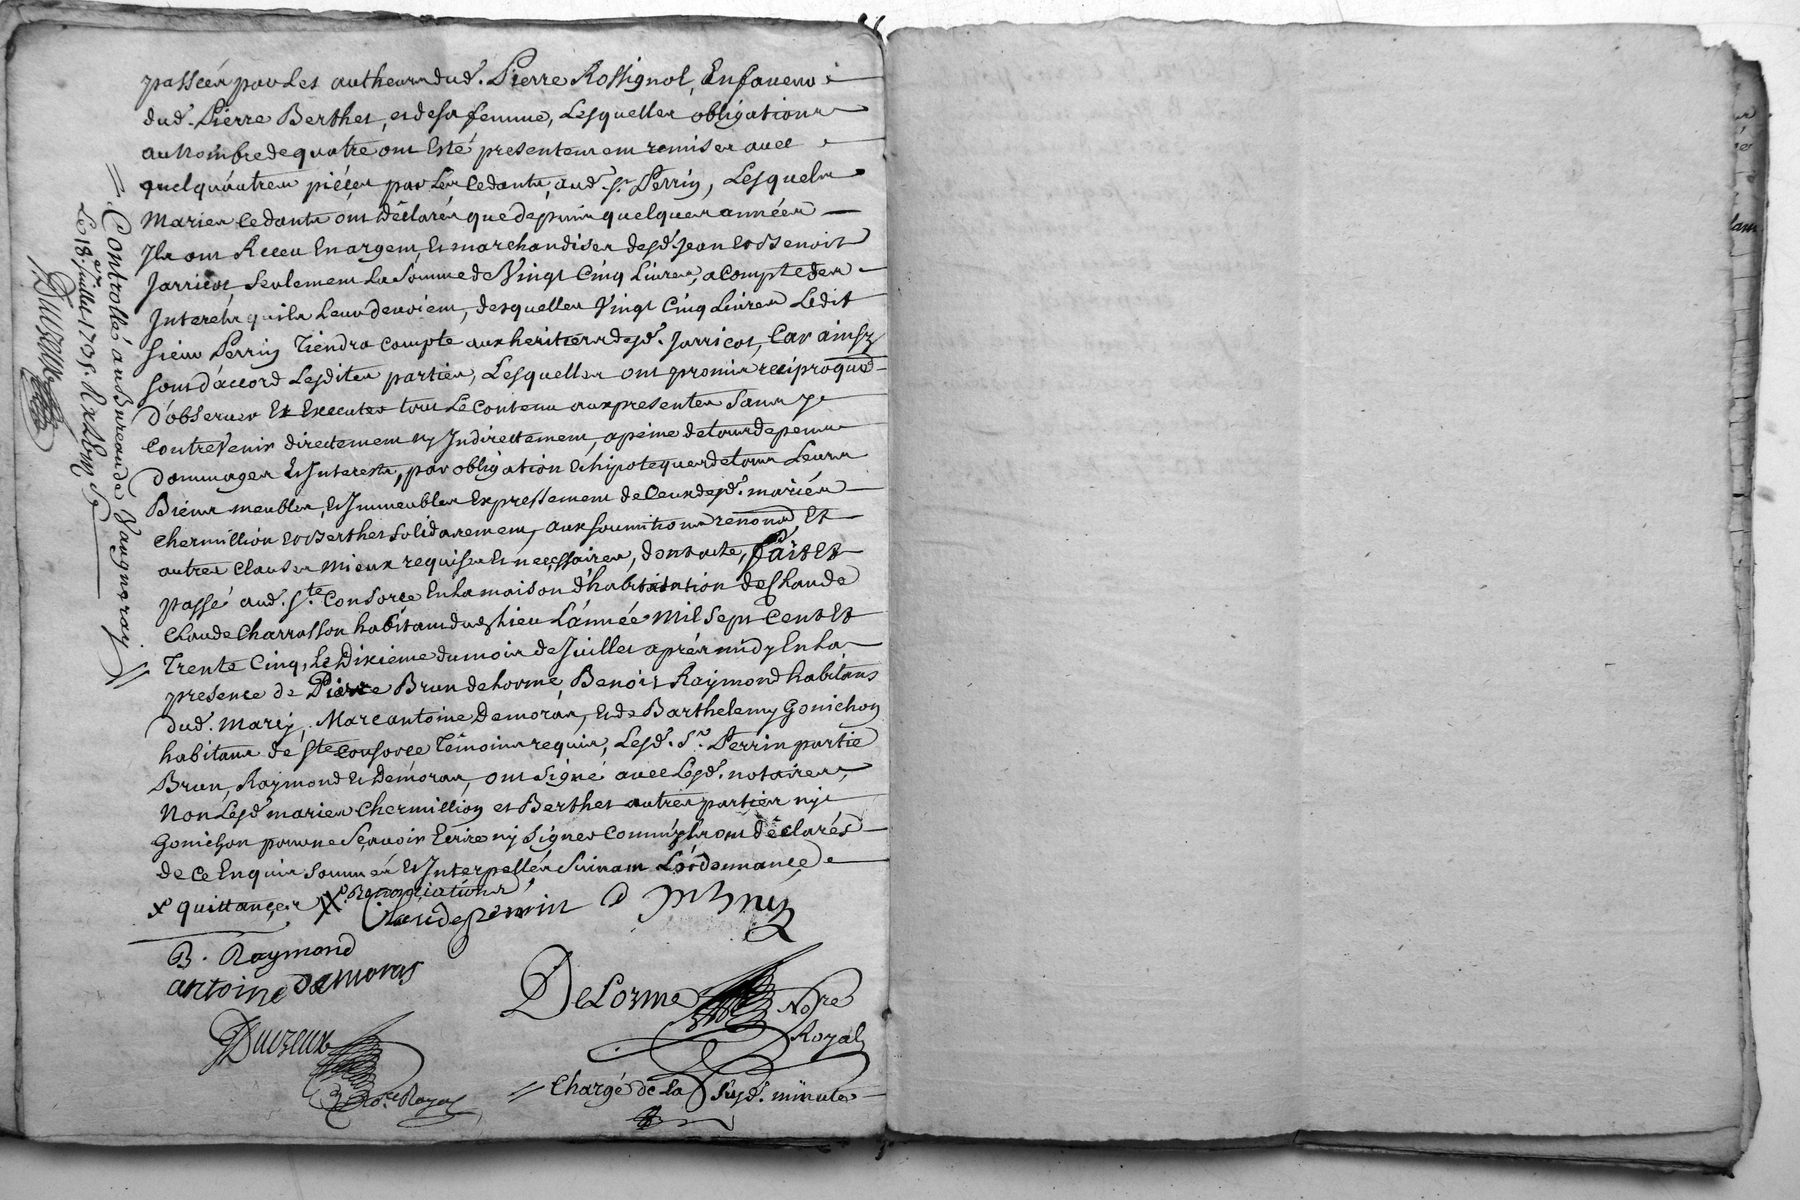 passées par les autheurs dud. Pierre Rossignol, En faveur
dud. Pierre Berthet, et de sa femme, Lesquelles obligations
au Nombre de quatre ont Esté presentement remises avec
quelqu'autres pièces par Les Cedants, aud. Sr. Perrin, Lesquels
Mariés Cedants ont déclarés que depuis quelques années
Ils ont Receu En argent Et marchandises desd. Jean et Benoit
Jarricot seulement La Somme de Vingt Cinq Livres, a Compte des
Interets qu'ils Leur devoient, desquelles Vingt Cinq Livres Ledit
Sieur Perrin Tiendra Compte aux heritiers desd. Jarricot, Car ainsy
sont d'accord Lesdites parties, Lesquelles ont promis reciproqud.
d'observer Et Executer tout Le Contenu aux presentes Sans y
Contrevenir directement ny Indirectement, a peine de tous depens
dommages Et Interests, par obligation Et hipoteques de tous Leurs
Biens meubles, Et Immeubles Expressement de Ceux desd. mariés
Chermillion et Berthet solidairement, aux soumitions renond. Et
autres Clauses mieux requises Et necessaires, dont acte, fait Et
passé aud. Ste. Consorce En La maison d'habitation de Claude
Claude Charrasson habitant dud. Lieu L'année Mil Sept Cent Et
Trente Cinq, Le Dixième du mois de Juillet après midy En La
presence de Pierre Brun de Lorme, Benoit Raymond habitans
dud. Marcy, Marc antoine Demoras, Et de Barthelemy Gonichon
habitans de Ste Consorce Témoins requis, Lesd. Sr. Perrin partie
Brun, Raymond Et Demoras, ont Signé avec Lesd. notaires,
Non Lesd. mariés Chermillion et Berthet autres parties ny
Gonichon pour ne Sçavoir Ecrire ny Signer Comm'ils ont déclarés
de Ce Enquis Sommés Et Interpellés Suivant L'ordonnance
X quittances XX Renonciations
Claude Perrin
B. Raymond
antoine Demoras
DeLorme Nore
Royal
Duvzeux
Nore. Royal
Chargé de La Susd. minute
Controllé au Bureau de Vaugneray
Le 18e Juillet 1735. R